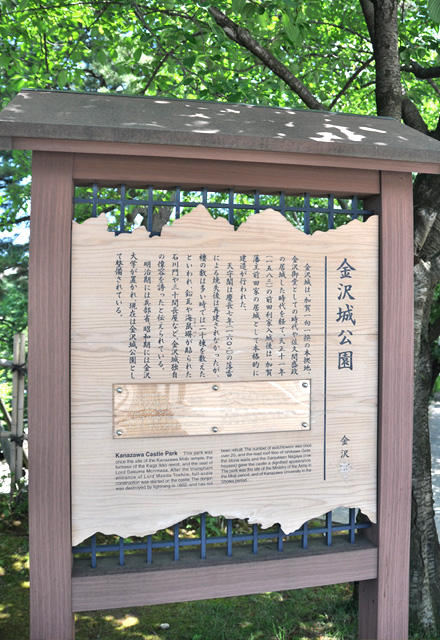 金沢城公園
金沢城は、加賀一向一揆の本拠地、
金沢御堂としての時代や佐久間盛政
の居城した時代を経て、天正十一年
(一五八三)の前田利家入城後は、加賀
藩主前田家の居城として本格的に
建造が行われた。
天守閣は慶長七年(一六〇二)の落雷
による焼失後は再建されなかったが、
櫓の数は多い時では二十棟を数えた
といわれ、鉛瓦や海鼠塀が貼られた
石川門や三十間長屋など、金沢城独自
の偉容を誇ったと伝えられている。
明治期には兵部省、昭和期には金沢
大学が置かれ、現在は金沢城公園とし
て整備されている。
金沢
Kanazawa Castle Park This park was
once the site of the Kanazawa Mido temple, the
fortress of the Kaga Ikko revolt, and the seat of
Lord Sakuma Morimasa. After the triumphant
entrance of Lord Maeda Toshiie, full-scale
construction was started on the castle. The donjon
was destroyed by lightning in 1602, and has not
been rebuilt. The number of watchtowers was once
over 20, and the lead roof tiles of Ishikawa Gate,
the stone walls and the Sanjukken Nagaya (row
houses) gave the castle a dignified appearance.
The park was the site of the Ministry of the Army in
the Meiji period, and of Kanazawa University in the
Showa period.